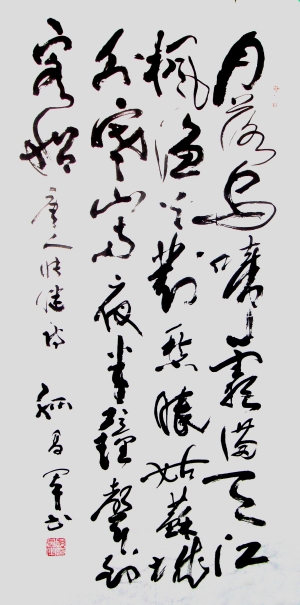 月落烏啼霜滿天江
楓漁火對愁眠姑蘇城
外寒山寺夜半鐘聲到
客船 唐人張繼詩 昌軍书